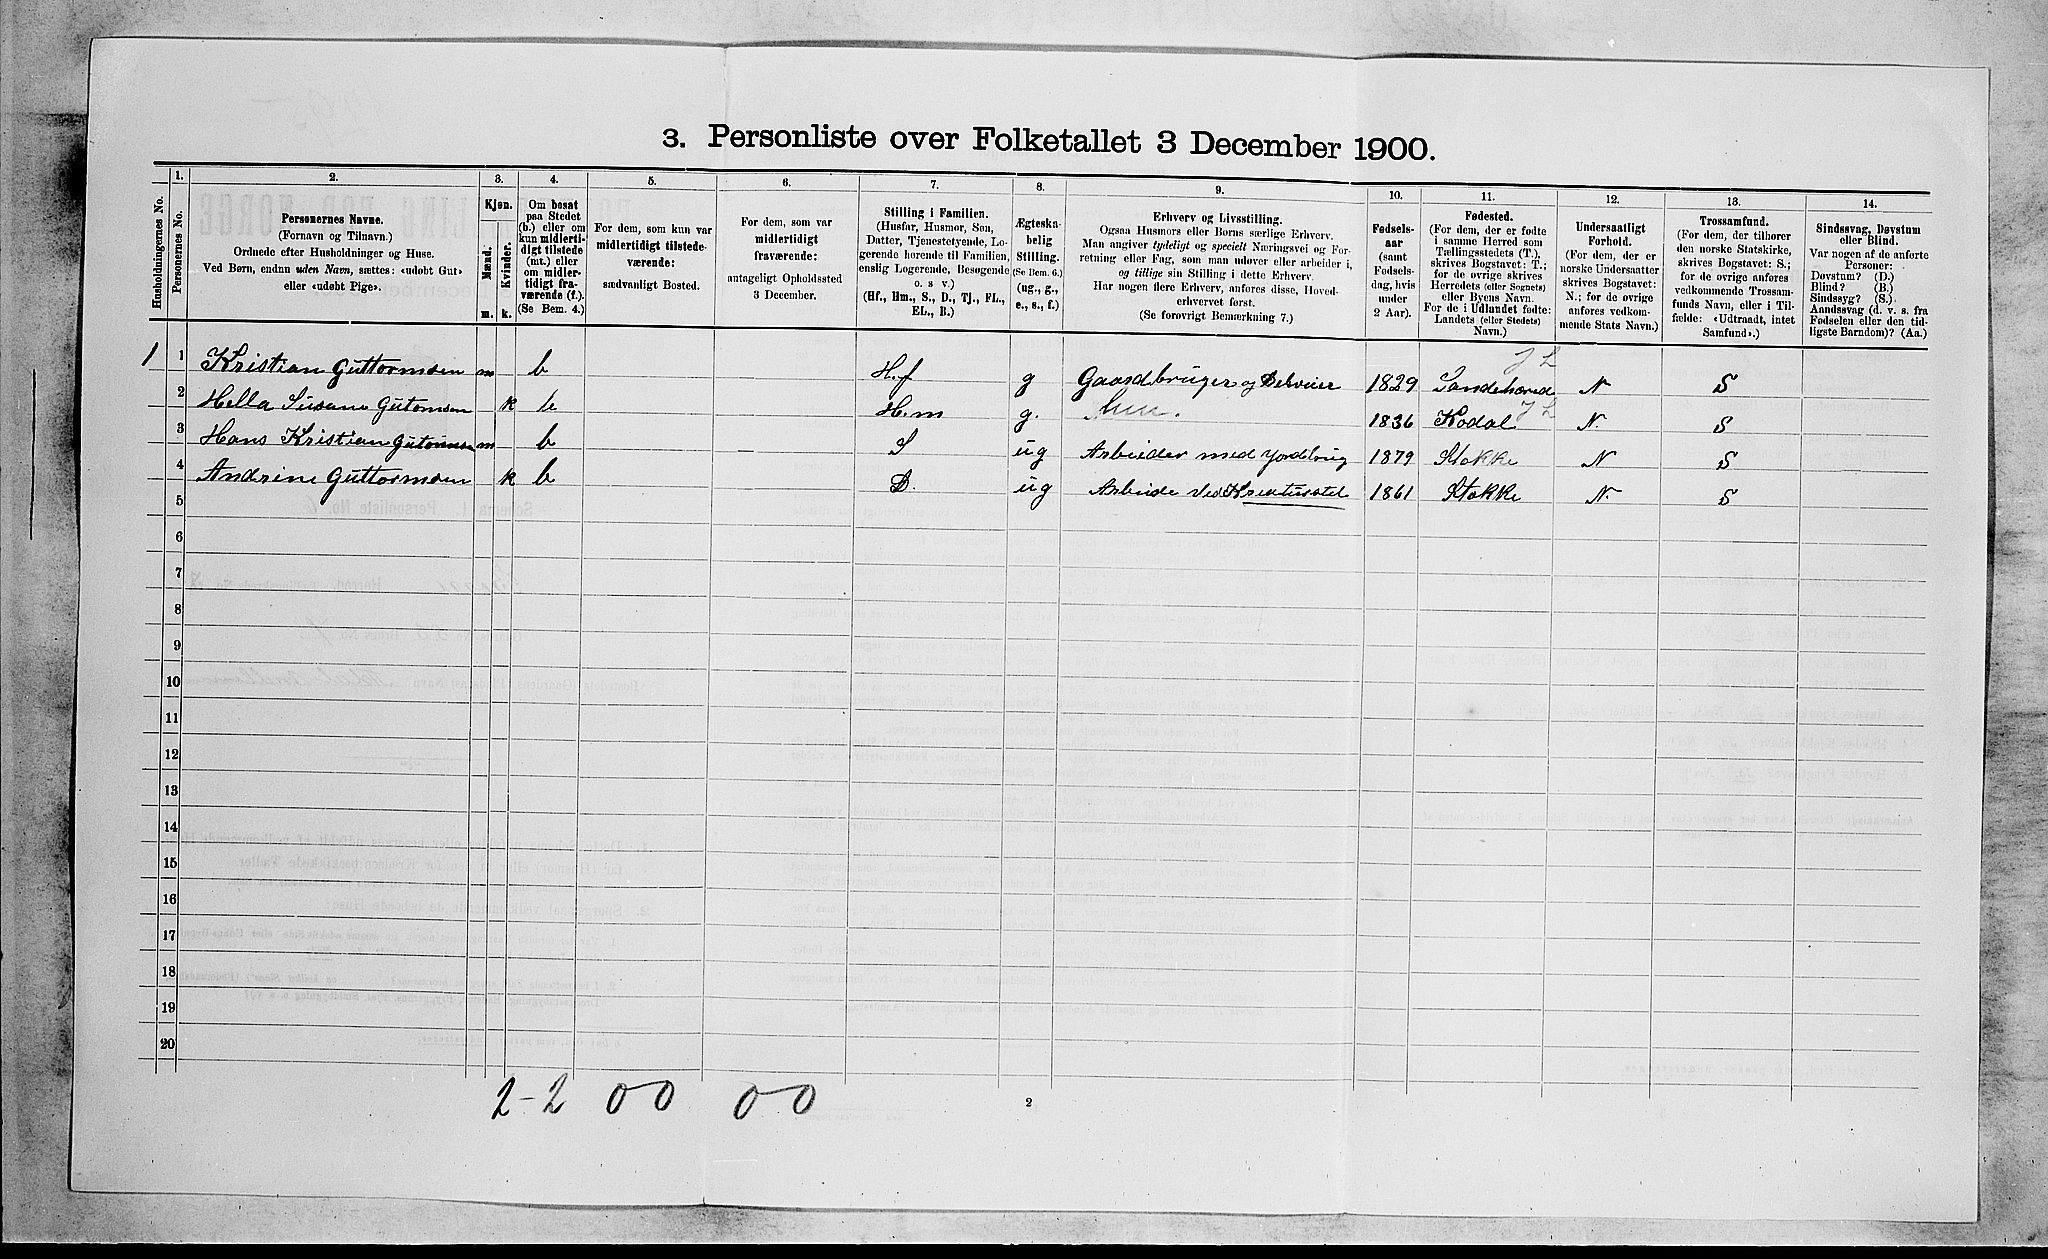 3. Personliste over Folketallet 3 December 1900.
1. 2. 3. 4. 5. 6. 7. 8. 9. 10. 11. 12. 13. 14.
Husholdningernes No.
Personernes No.
Personernes Navne.
(Fornavn og Tilnavn.)
Ordnede efter Husholdninger og Huse.
Ved Børn, endnu uden Navn, sættes: «udøbt Gut»
eller «udøbt Pige».
Kjøn.
Mænd.
Kvinder.
m. k.
Om bosat
paa Stedet
(b.) eller om
kun midlerti-
digt tilstede
(mt.) eller
om midler-
tidigt fra-
værende (f.).
(Se Bem. 4.)
For dem, som kun var
midlertidigt tilstede-
værende:
sædvanligt Bosted.
For dem, som var
midlertidigt
fraværende:
antageligt Opholdssted
3 December.
Stilling i Familien.
(Husfar, Husmor, Søn,
Datter, Tjenestetyende, Lo-
gerende hørende til Familien,
enslig Logerende, Besøgende
o. s v.)
(Hf., Hm., S., D., Tj., FL.,
EL., B.)
Ægteska-
belig
Stilling.
(Se Bem. 6.)
(ug., g.,
e., s., f.)
Erhverv og Livsstilling.
Ogsaa Husmors eller Børns særlige Erhverv.
Man angiver tydeligt og specielt Næringsvei og For-
retning eller Fag, som man udøver eller arbeider i,
og tillige sin Stilling i dette Erhverv.
Har nogen flere Erhverv, anføres disse, Hoved-
erhvervet først.
(Se forøvrigt Bemærkning 7.)
Fødsels-
aar
(samt
Fødsels-
dag, hvis
under
2 Aar).
Fødested.
(For dem, der er fødte
i samme Herred som
Tællingsstedets (T.),
skrives Bogstavet: T.;
for de øvrige skrives
Herredets (eller Sognets)
eller Byens Navn.
For de i Udlandet fødte:
Landets (eller Stedets)
Navn.)
Undersaatligt
Forhold.
(For dem, der er
norske Undersaatter
skrives Bogstavet:
N.; for de øvrige
anføres vedkom-
mende Stats Navn.)
Trossamfund.
(For dem, der tilhører
den norske Statskirke,
skrives Bogstavet: S.;
for de øvrige anføres
vedkommende Trossam-
funds Navn, eller i Til-
fælde: «Udtraadt, intet
Samfund».)
Sindssvag, Døvstum
eller Blind.
Var nogen af de anførte
Personer:
Døvstum? (D.)
Blind? (B.)
Sindssyg? (S.)
Aandssvag (d. v. s. fra
Fødselen eller den tid-
ligste Barndom)? (Aa.)
1 1 Kristian Guttormsen m b H.f g Gaardbruger og Selveier 1829 Sandeherred N S
2 Hella Susane Gutomsen k b H.m g. 1836 Kodal N. S
3 Hans Kristian Gutomsen m b S ug Arbeider med Jordbrug 1879 Stokke N S
4 Andrine Guttormsen k b D. ug Arbeide ved Kreaturstel 1861 Stokke N. S
5
6
7
8
9
10
11
12
13
14
15
16
17
18
19
20
2-2 00 00
2